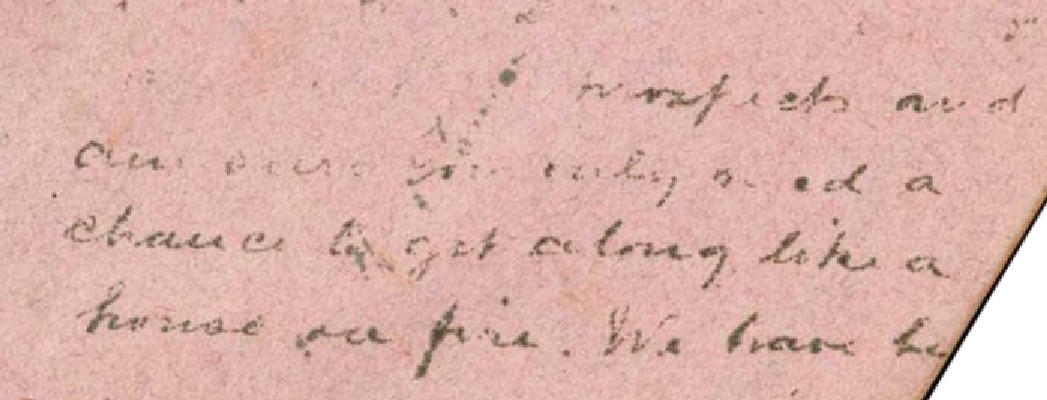 prospects and
am sure you only need a
chance to get along like a
house on fire. We have